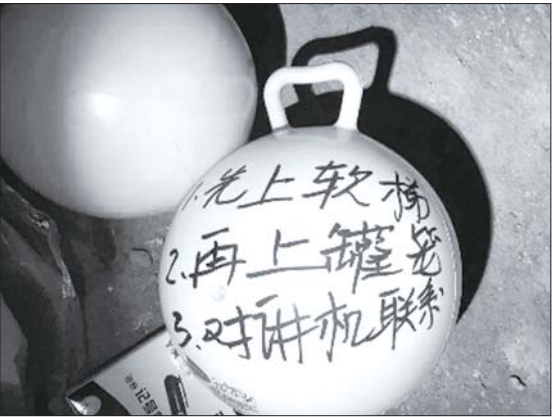 1.先上软梯
2.再上罐笼
3.对讲机联系
记号